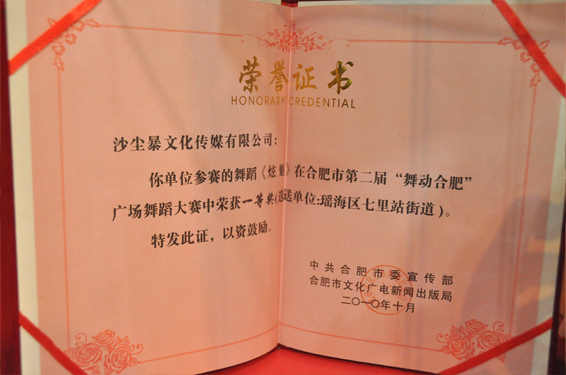 荣誉证书
HONORARY CREDENTIAL
沙尘暴文化传媒有限公司：
你单位参赛的舞蹈《炫 》在合肥市第二届“舞动合肥”
广场舞蹈大赛中荣获一等奖(选送单位:瑶海区七里站街道)。
特发此证，以资鼓励。
中共合肥市委宣传部
合肥市文化广电新闻出版局
二〇一〇年十月